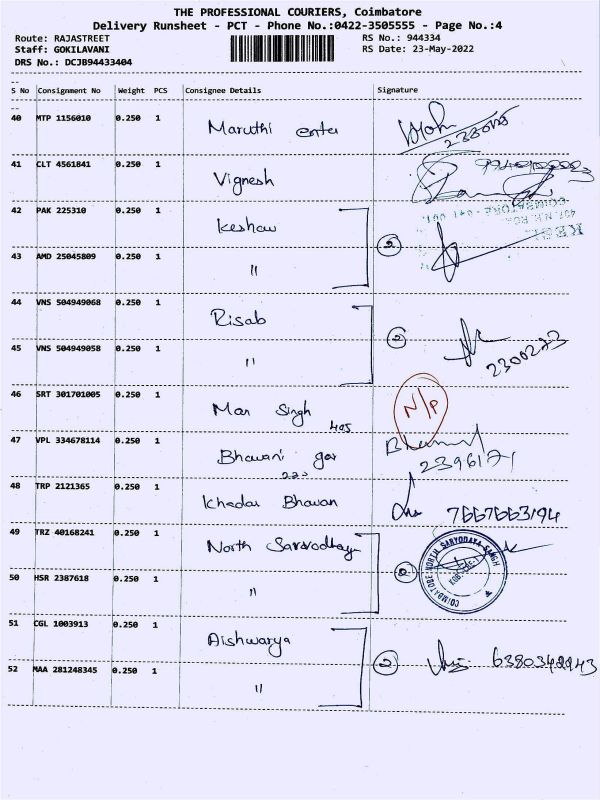 THE PROFESSIONAL COURIERS, Coimbatore
Delivery Runsheet - PCT - Phone No.:0422-3505555 - Page No.:4
Route: RAJASTREET
RS No.: 944334
Staff: GOKILAVANI
RS Date: 23-May-2022
DRS No.: DCJB94433404
S No Consignment No Weight PCS Consignee Details Signature
40 MTP 1156010 0.250 1 Maruthi enter
41 CLT 4561841 0.250 1 Vignesh
42 PAK 225310 0.250 1 Keshav
43 AMD 25045809 0.250 1 " 2
44 VNS 504949068 0.250 1 Risab
45 VNS 504949058 0.250 1 " 2 2300273
46 SRT 301701005 0.250 1 Man Singh N/P
405
47 VPL 334678114 0.250 1 Bhavani gar 2396171
48 TRP 2121365 0.250 1 Bhavan 7667663194
49 TRZ 40168241 0.250 1 North Sarvodhaya
COIMBATORE NORTH SARVODAYA SANGH
50 HSR 2387618 0.250 1 " 2
51 CGL 1003913 0.250 1 Aishwarya
52 MAA 281248345 0.250 1 " 2